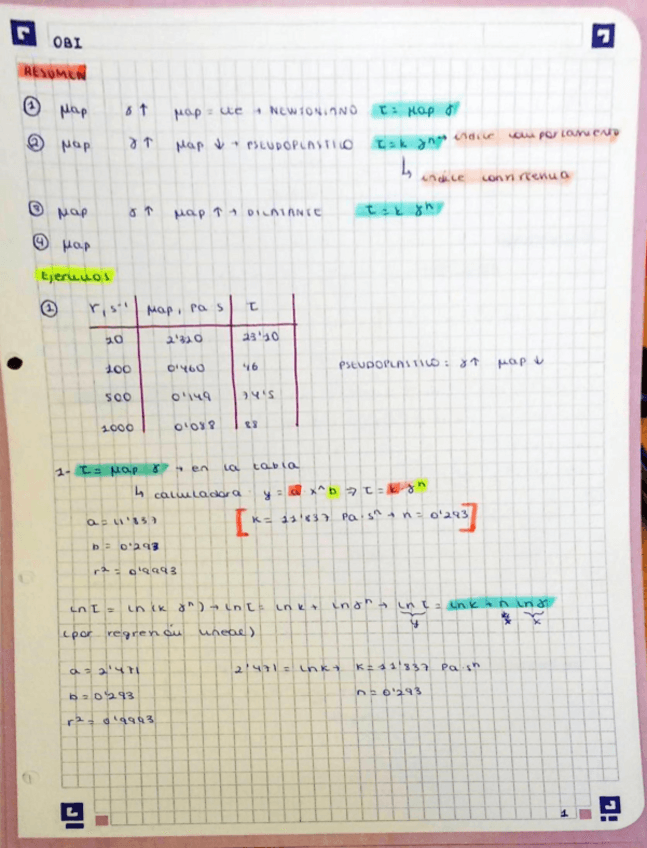 OBI
RESUMEN
① μap γ↑ μap = cte → NEWTONIANO τ = μap γ
② μap γ↑ μap ↓ → PSEUDOPLASTICO τ = k γⁿ → indice comportamiento
↳ indice consistencia
③ μap γ↑ μap ↑ → DILATANTE τ = k γⁿ
④ μap
Ejercicios
① γ, s⁻¹ μap, Pa s τ
20 2'320
100 0'460 46
500 0'149 74'5
1000 0'088 88
PSEUDOPLASTICO: γ↑ μap ↓
1- τ = μap γ → en la tabla
↳ calculadora y = a x^b ⇒ τ = k γⁿ
a = 11'837 [K = 11'837 Pa·sⁿ → n = 0'293]
b = 0'293
r² = 0'9993
ln τ = ln (k γⁿ) → ln τ = ln k + ln γⁿ → ln τ = ln k + n ln γ
y x
(por regresión lineal)
a = 2'471 2'471 = ln k → k = 11'837 Pa·sⁿ
b = 0'293 n = 0'293
r² = 0'9993
1